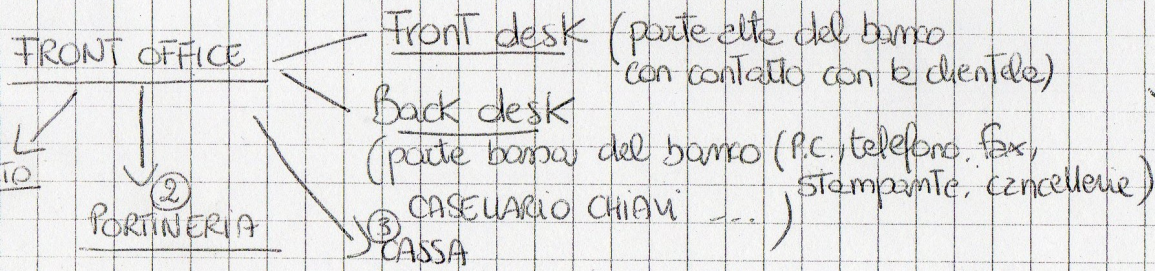 FRONT OFFICE
Front desk (parte alta del banco
con contatto con la clientela)
Back desk
(parte bassa del banco (P.C., telefono, fax,
stampante, cancelleria)
CASELLARIO CHIAVI ... )
TO
② PORTINERIA
③ CASSA